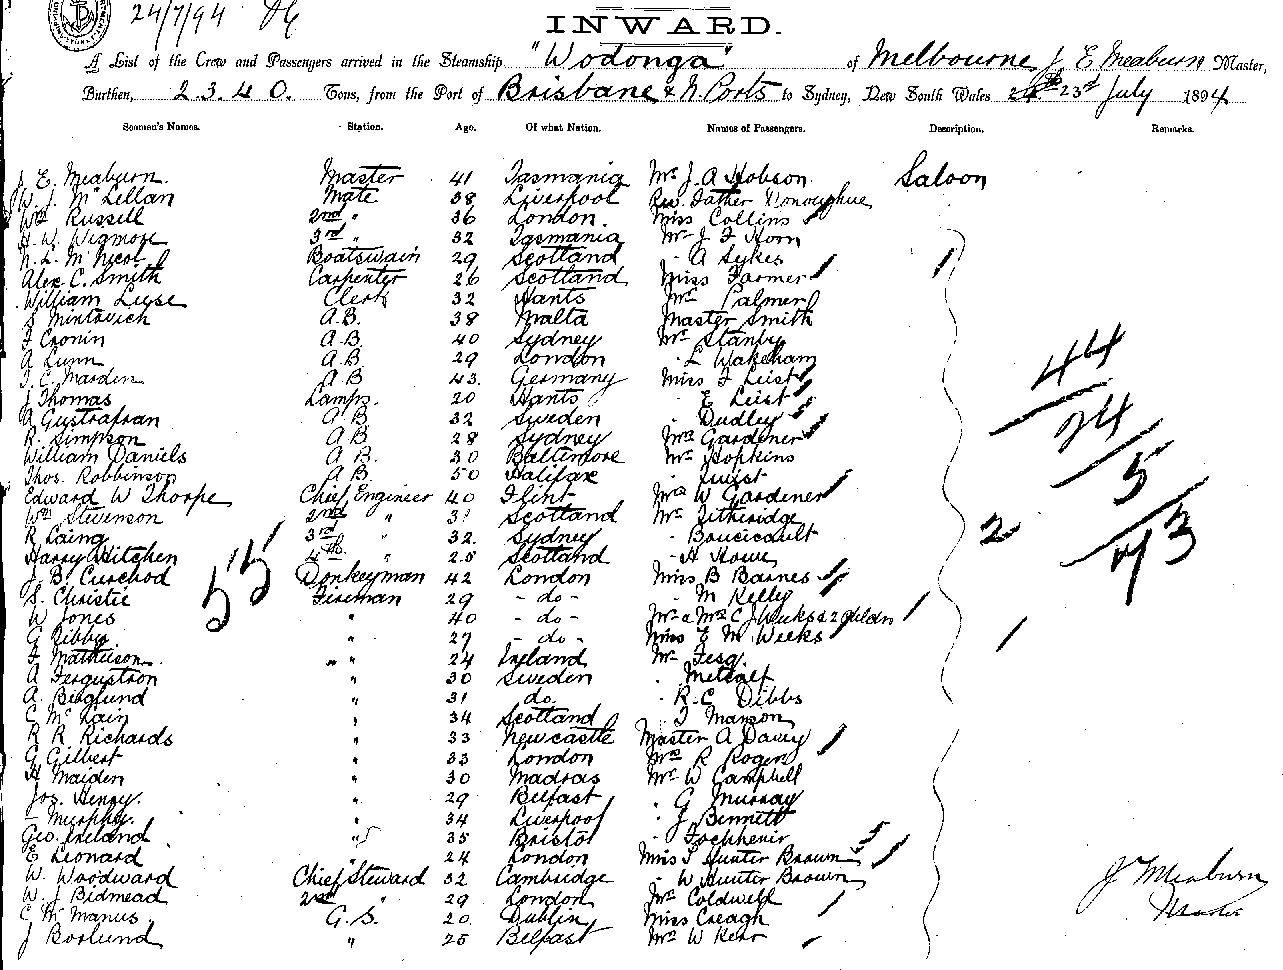 24/7/94
INWARD.
A List of the Crew and Passengers arrived in the Steamship "Wodonga" of Melbourne, J. E. Meaburn Master,
Burthen, 2.3.4.0. Tons, from the Port of Brisbane & N. Ports to Sydney, New South Wales 23rd July 1894
Seamen's Names. Station. Age. Of what Nation. Names of Passengers. Description. Remarks.
J. E. Meaburn. Master 41 Tasmania Mr J. A Hobson Saloon
W. J. McLellan Mate 38 Liverpool Rev. Father Donoughue
Wm Russell 2nd " 36 London. Miss Collins
H. W. Wigmore 3rd " 32 Tasmania Mr J F Horn
N. L. McNicol Boatswain 29 Scotland " A Sykes
Alex C. Smith Carpenter 26 Scotland Miss Farmer
William Luyse Clerk 32 Hants Mr Palmer
S Mintovich A.B. 38 Malta Master Smith
F Cronin A.B. 40 Sydney Mr Stanby
A Lunn A.B 29 London " L Wakeham
T. C. Marden A B 43. Germany Miss F Leist
J Thomas Lamps. 20 Hants " E Leist
A Gustrafsan A B 32 Sweden " Dudley
R. Simpson A B 28 Sydney Mrs Gardener
William Daniels A B. 30 Baltimore Mr Hopkins
Thos. Robbinson A B. 50 Halifax
Edward W Thorpe Chief Engineer 40 Flint Mrs W Gardener
Wm Stevenson 2nd " 31 Scotland Mr Titheridge
R Laing 3rd " 32. Sydney " Boucicault
Harry Hitchen 4th " 25 Scotland " H Howe
J. B. Curchod Donkeyman 42 London Miss B Barnes
S. Christie Fireman 29 - do - " M Kelly
W Jones " 40 - do - Mr & Mrs C J Weeks & 2 children
G Bibby " 27 - do - Miss E M Weeks
F Mathieson " " 24 Ireland Mr Fesq.
A Fergustson " 30 Sweden " Metcalf
A. Berglund " 31 do. " R. C Dibbs
C McLain " 34 Scotland " T Manson
R R Richards " 33 Newcastle Master A Davey
G Gilbert " 33 London Mrs R Rogers
H Maiden " 30 Madras Mr W Campbell
Jos. Henry. " 29 Belfast " G Murray
- Murphy. " 34 Liverpool " J Bennett
Geo. Ireland " 35 Bristol
E Leonard " 24 London Miss T Hunter Brown
W. Woodward Chief Steward 32 Cambridge " W Hunter Brown
W. J Bidmead 2nd " 29 London Mr Coldwell
C McManus G. S. 20. Dublin Miss Creagh
J Borlund " 25 Belfast Mrs W Kerr
55
44
24
5
73
2
J E Meaburn
Master